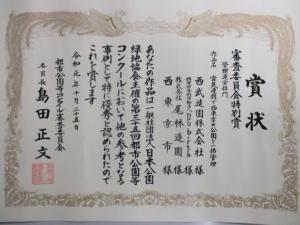 賞状
審査委員会特別賞
管理運営部門
西武造園株式会社 様
NPO birth
尾林造園 様
西東京市 様
あなたの作品は一般社団法人日本公園
緑地協会主催の第三十五回都市公園等
コンクールにおいて他の参考となる
事例として特に優秀と認められたので
これを賞します
令和元年十月二十五日
都市公園等コンクール審査委員会
委員長 島田正文